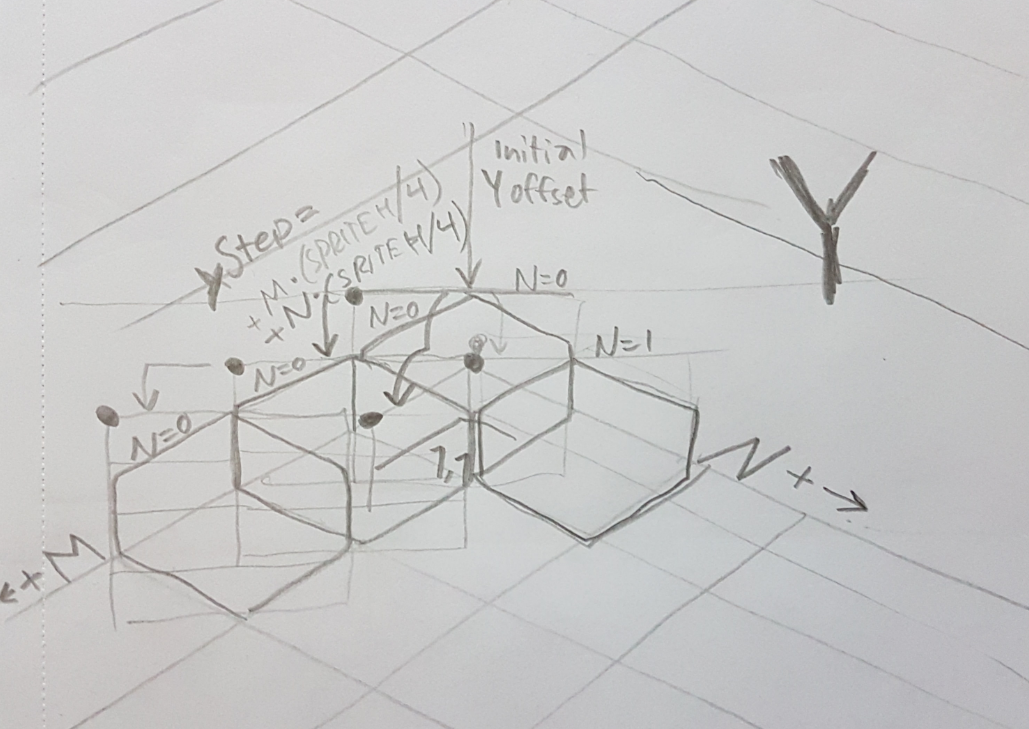 Initial
Y offset
Y
yStep=
+ M·(SPRITE H/4)
+ N·(SPRITE H/4)
N=0
N=0
N=1
N=0
N=0
1,1
N + →
← + M